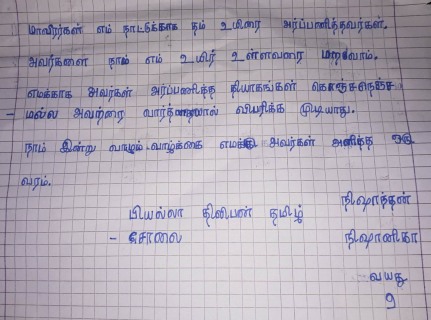 மாவீரர்கள் எம் நாட்டுக்காக தம் உயிரை அர்ப்பணித்தவர்கள்.
அவர்களை நாம் எம் உயிர் உள்ளவரை மறவோம்.
எமக்காக அவர்கள் அர்ப்பணித்த தியாகங்கள் கொஞ்சநெஞ்ச
- மல்ல அவற்றை வார்த்தைகளால் விபரிக்க முடியாது.
நாம் இன்று வாழும் வாழ்க்கை எமக்கு அவர்கள் அளித்த ஒரு
வரம்.
நிஷாந்தன்
பியல்லா திலீபன் தமிழ்
- சோலை
நிஷானிகா
வயது
9